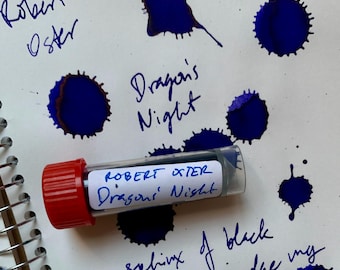 Robert
Oster
Dragon's
Night
ROBERT OSTER
Dragons' Night
sphinx of black
my